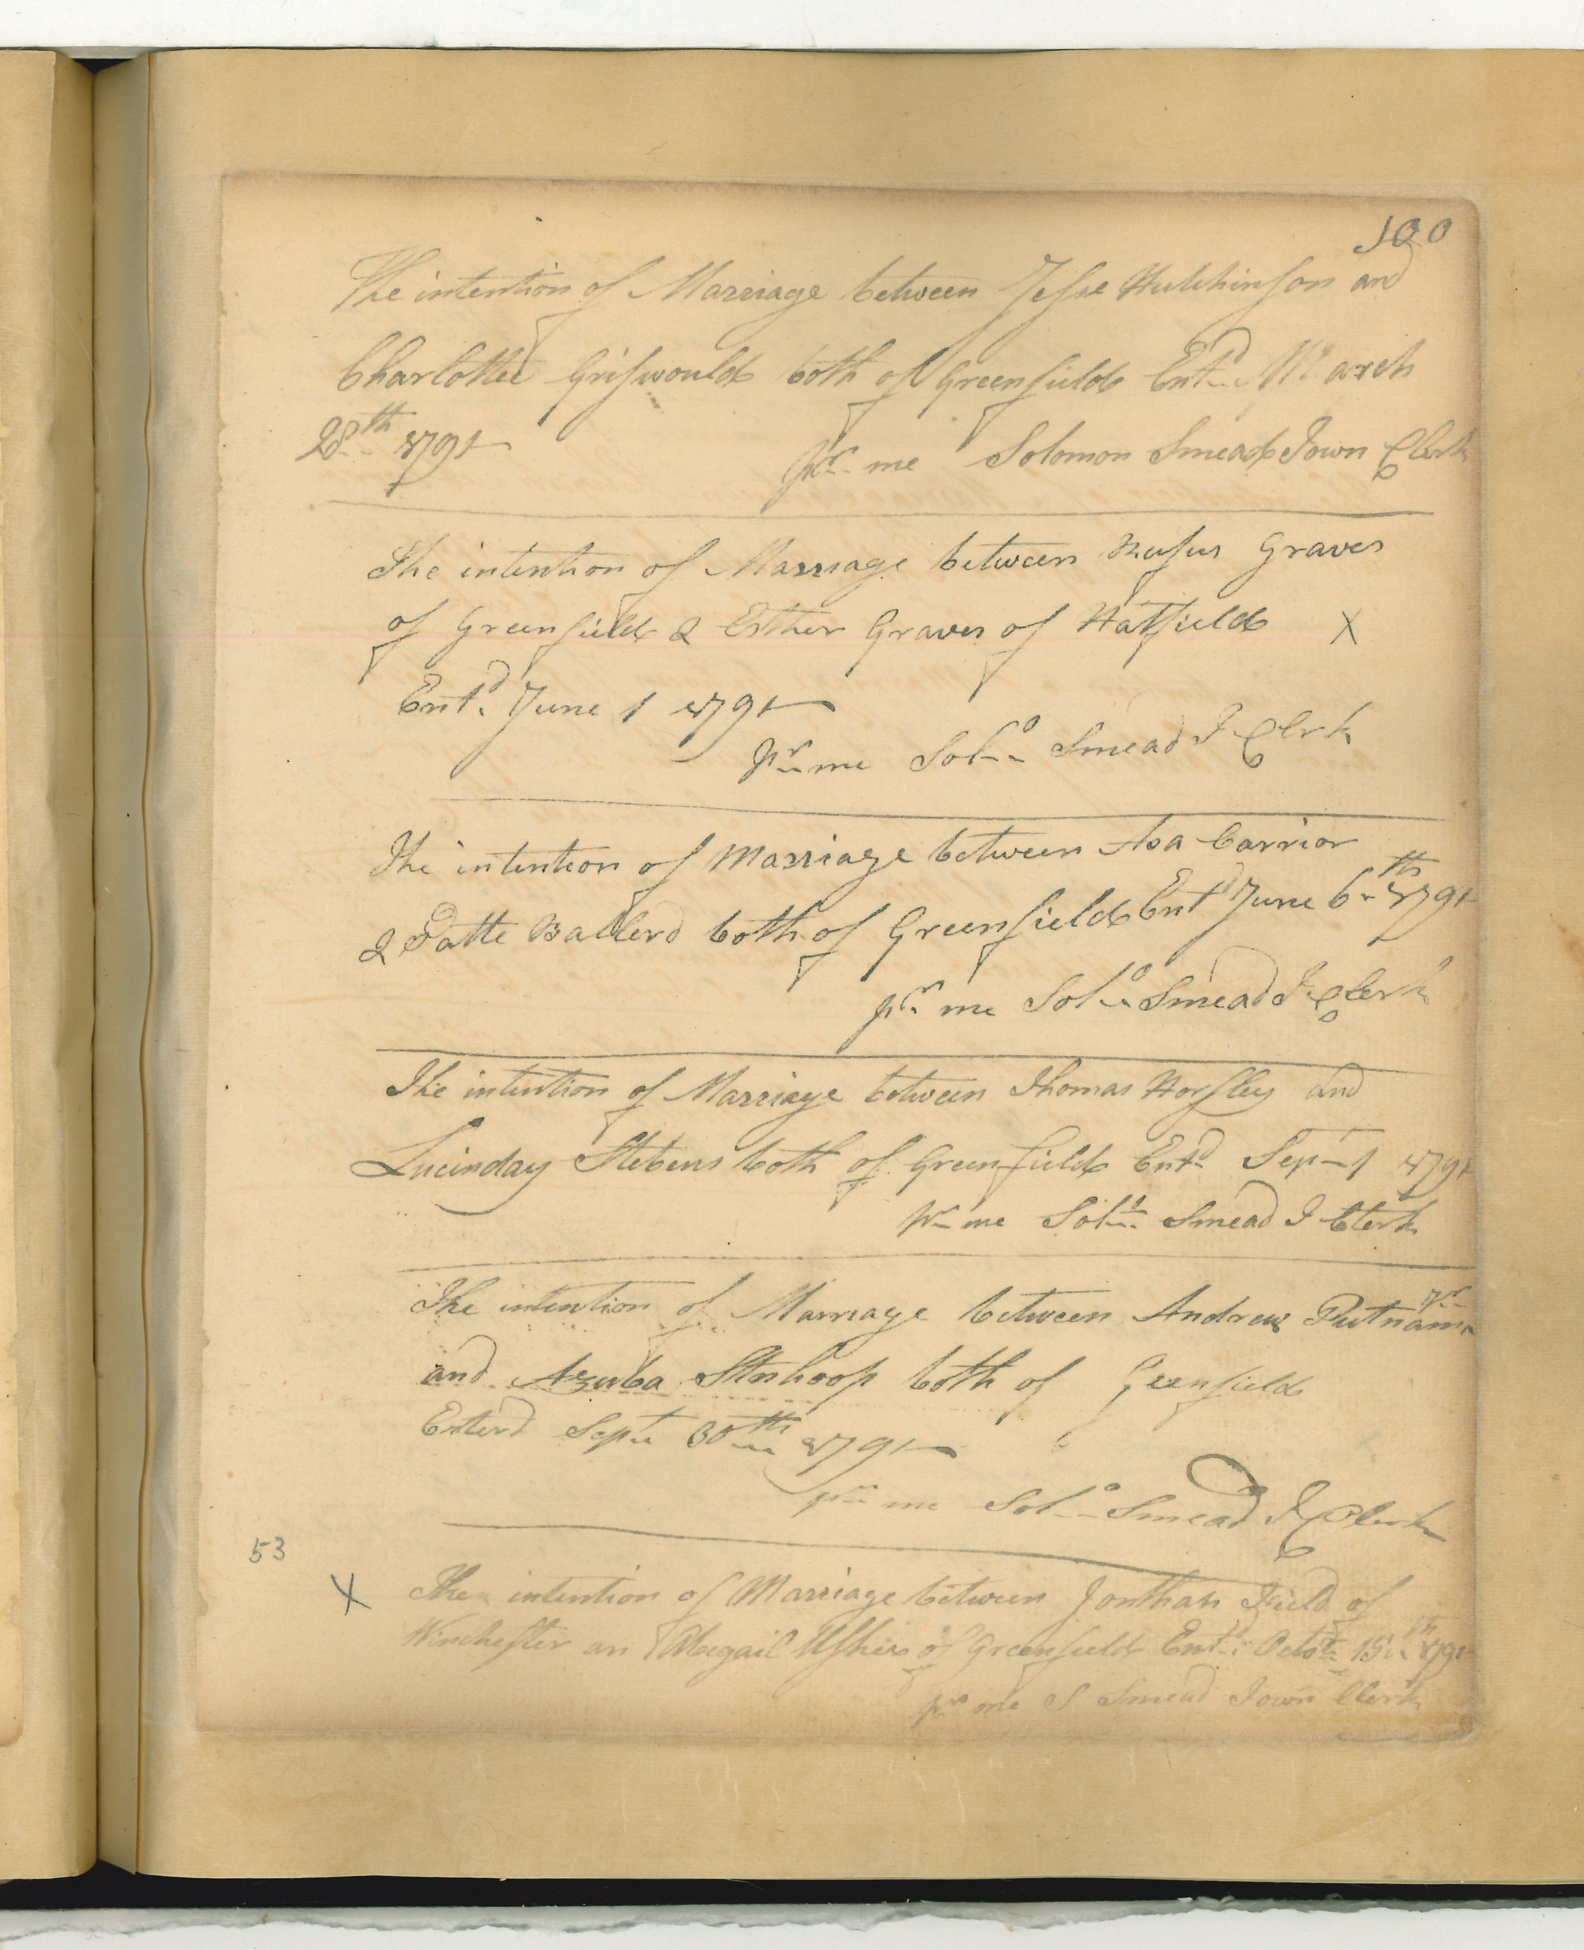 100
The intention of Marriage between Jesse Hutchinson and
Charlottee Griswould both of Greenfield Entd March
28th 1791
pr me Solomon Smead Town Clerk
The intention of Marriage between Rufus Graves
of Greenfield & Esther Graves of Hatfield X
Entd June 1 1791
pr me Solo Smead T Clerk
The intention of Marriage between Asa Carrior
& Patte Ballerd both of Greenfield Entd June 6th 1791
pr me Solo Smead T Clerk
The intention of Marriage between Thomas Horsley and
Lucinday Stebens both of Greenfield Entd Sep 1 1791
pr me Soln Smead T Clerk
The intention of Marriage between Andrew Putnam Jr
and Azuba both of Geenfield
Enterd Sept 30th 1791
pr me Solo Smead T Clerk
53
X The intention of Marriage between Jonthan Field of
Winchester an Abegail of Greenfield Entd Octor 15th 1791
pr me S Smead Town Clerk